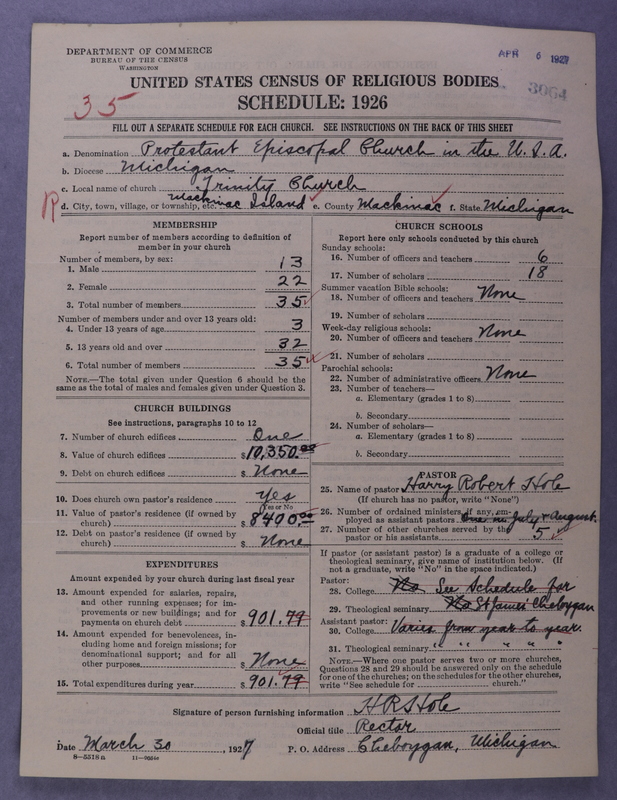 DEPARTMENT OF COMMERCE
BUREAU OF THE CENSUS
WASHINGTON
APR 6 1927
3064
UNITED STATES CENSUS OF RELIGIOUS BODIES
SCHEDULE: 1926
35
FILL OUT A SEPARATE SCHEDULE FOR EACH CHURCH. SEE INSTRUCTIONS ON THE BACK OF THIS SHEET
a. Denomination Protestant Episcopal Church in the U.S.A.
b. Diocese Michigan
c. Local name of church Trinity Church
R d. City, town, village, or township, etc. Mackinac Island e. County Mackinac f. State Michigan
MEMBERSHIP
Report number of members according to definition of
member in your church
Number of members, by sex:
1. Male 13
2. Female 22
3. Total number of members 35
Number of members under and over 13 years old:
4. Under 13 years of age 3
5. 13 years old and over 32
6. Total number of members 35
NOTE.—The total given under Question 6 should be the
same as the total of males and females given under Question 3.
CHURCH BUILDINGS
See instructions, paragraphs 10 to 12
7. Number of church edifices One
8. Value of church edifices $10,350.00
9. Debt on church edifices $None
10. Does church own pastor's residence yes
(Yes or No)
11. Value of pastor's residence (if owned by
church) $8400.00
12. Debt on pastor's residence (if owned by
church) $None
EXPENDITURES
Amount expended by your church during last fiscal year
13. Amount expended for salaries, repairs,
and other running expenses; for im-
provements or new buildings; and for
payments on church debt $901.79
14. Amount expended for benevolences, in-
cluding home and foreign missions; for
denominational support; and for all
other purposes $None
15. Total expenditures during year $901.79
CHURCH SCHOOLS
Report here only schools conducted by this church
Sunday schools:
16. Number of officers and teachers 6
17. Number of scholars 18
Summer vacation Bible schools:
18. Number of officers and teachers None
19. Number of scholars
Week-day religious schools:
20. Number of officers and teachers None
21. Number of scholars
Parochial schools:
22. Number of administrative officers None
23. Number of teachers—
a. Elementary (grades 1 to 8)
b. Secondary
24. Number of scholars—
a. Elementary (grades 1 to 8)
b. Secondary
PASTOR
25. Name of pastor Harry Robert Hole
(If church has no pastor, write "None")
26. Number of ordained ministers, if any, em-
ployed as assistant pastors One in July & August.
27. Number of other churches served by the
pastor or his assistants 5
If pastor (or assistant pastor) is a graduate of a college or
theological seminary, give name of institution below. (If
not a graduate, write "No" in the space indicated.)
Pastor:
28. College No See Schedule for
29. Theological seminary No St James Cheboygan
Assistant pastor:
30. College Varies from year to year.
31. Theological seminary " " " " "
NOTE.—Where one pastor serves two or more churches,
Questions 28 and 29 should be answered only on the schedule
for one of the churches; on the schedules for the other churches,
write "See schedule for church."
Signature of person furnishing information HRS Hole
Official title Rector
Date March 30, 1927 P. O. Address Cheboygan, Michigan
8—5518a